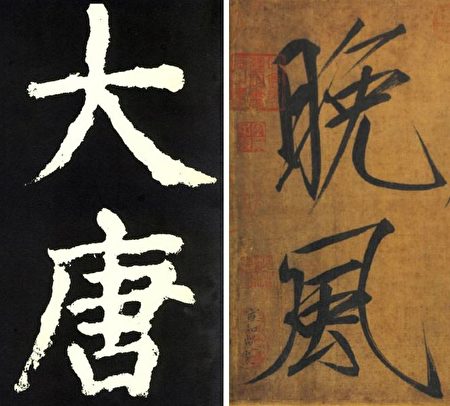 大唐
晚風